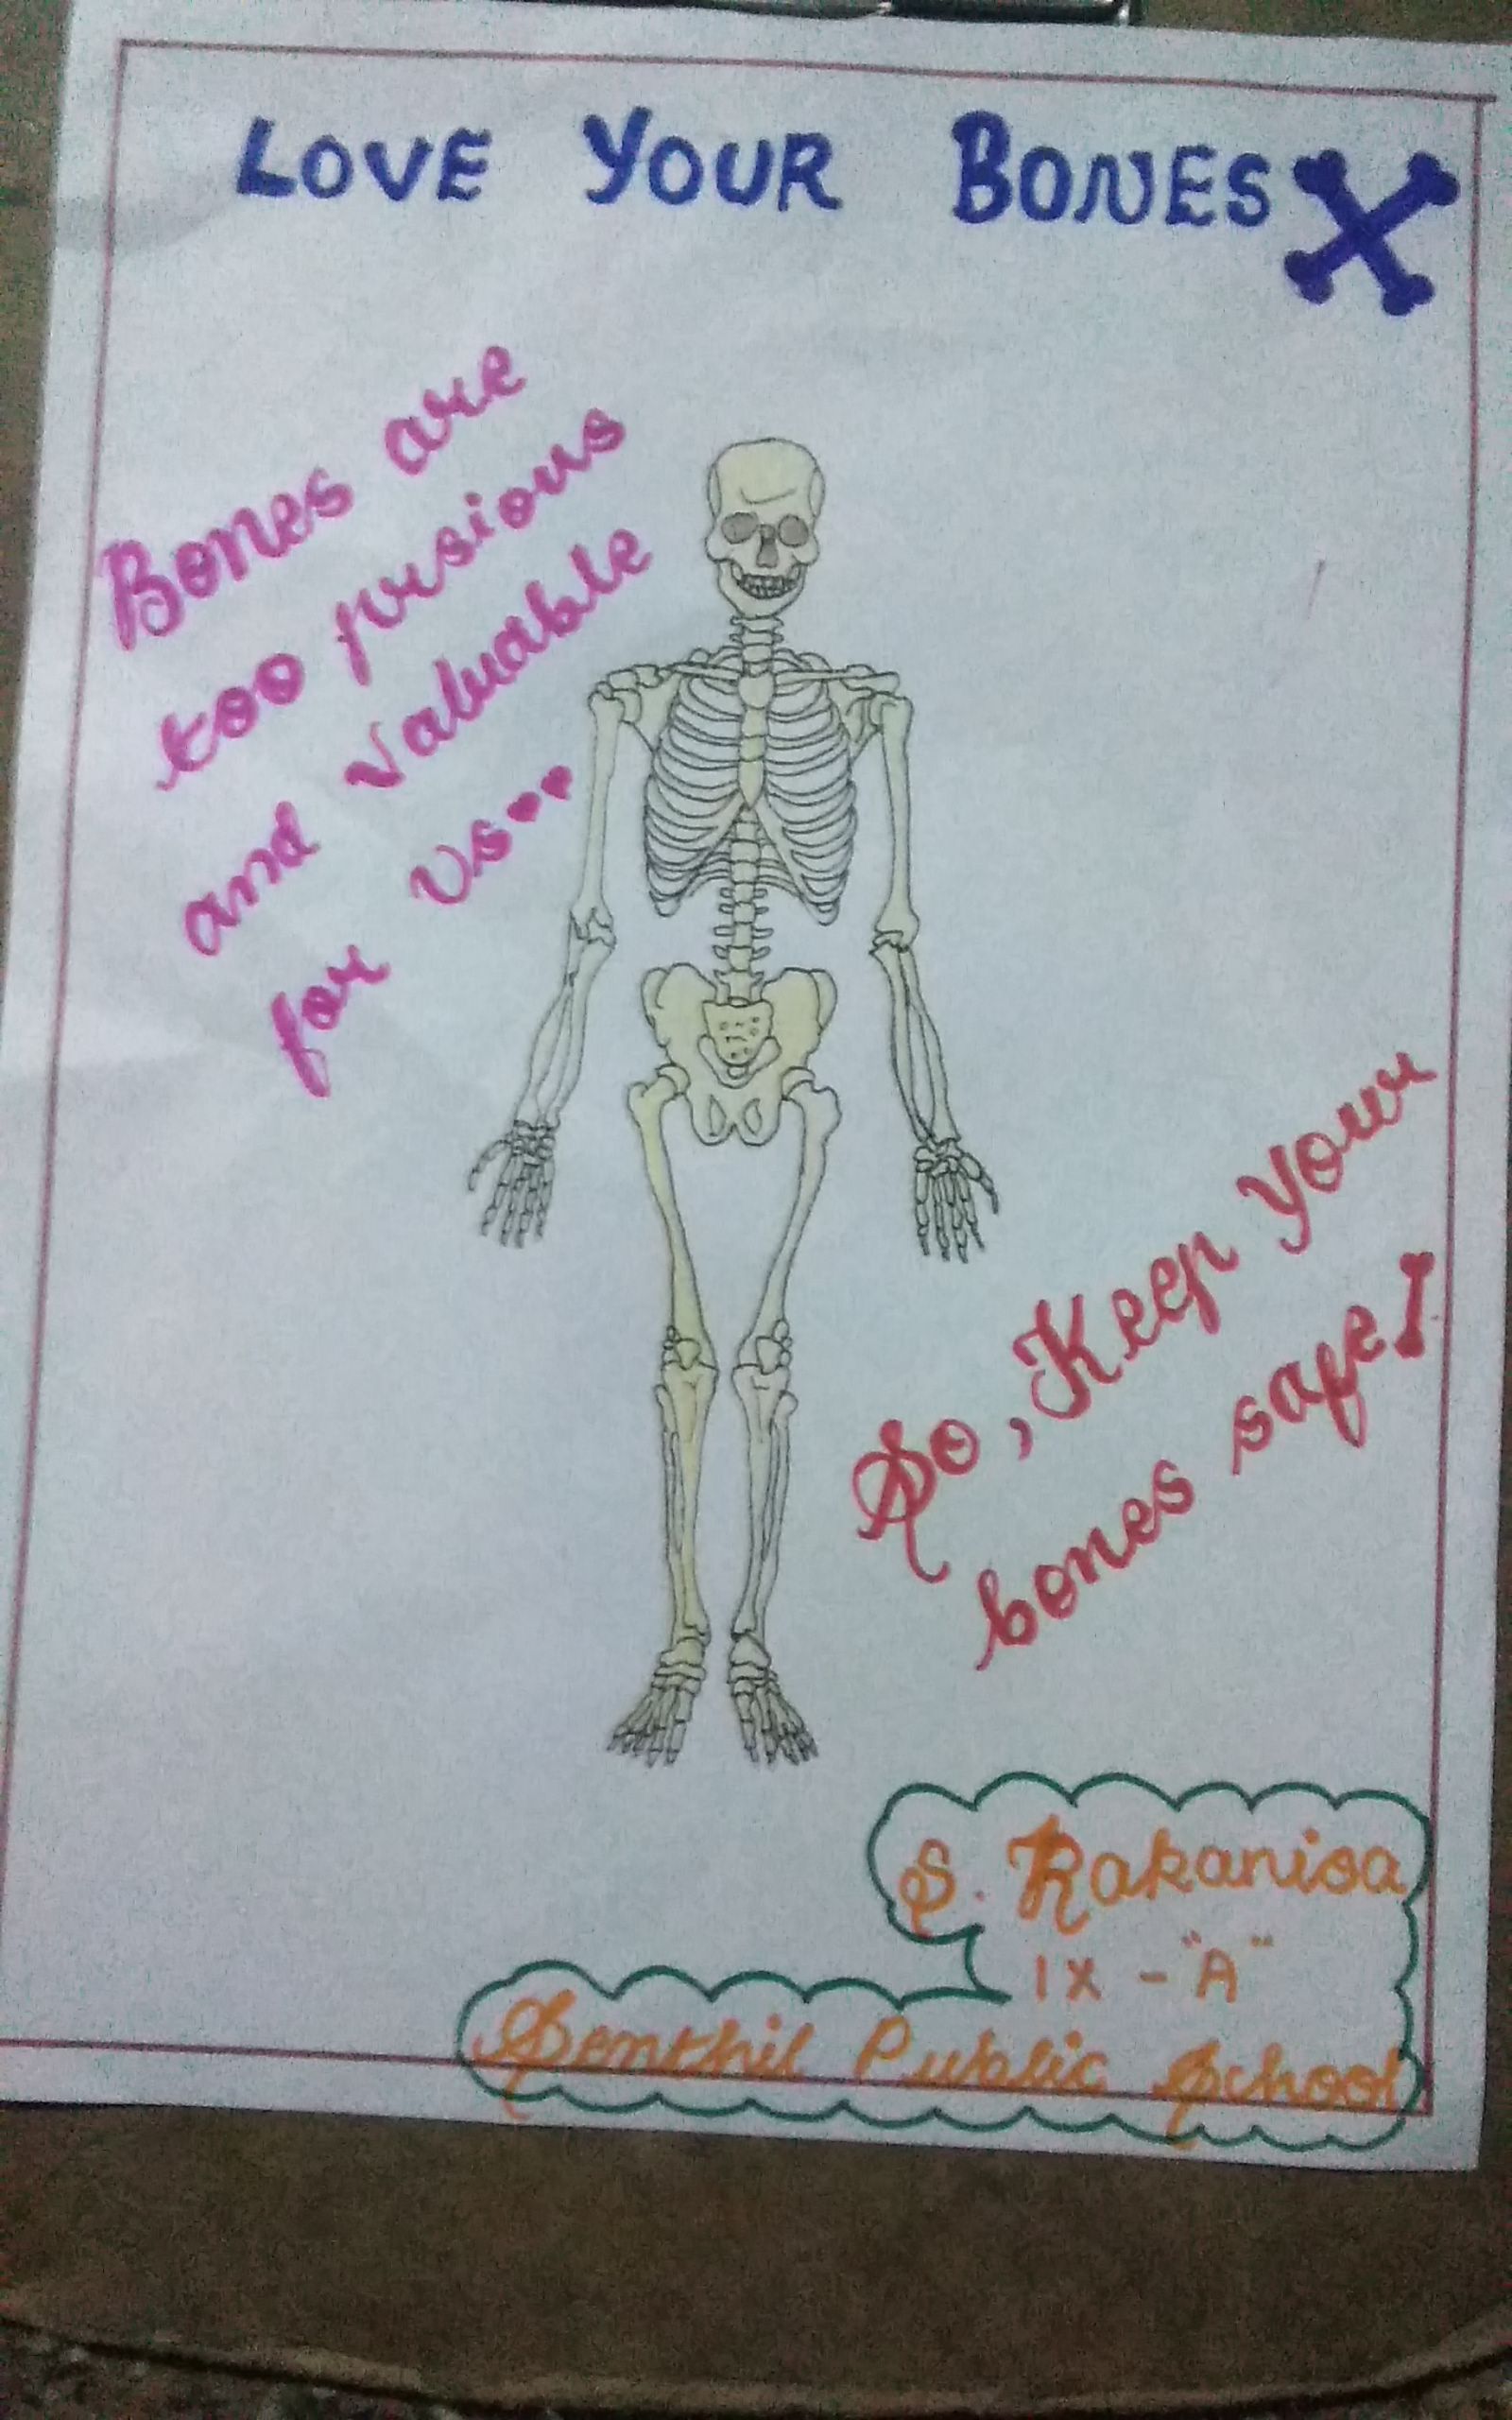 LOVE YOUR BONES
Bones are
too prsious
and valuable
for us..
So, Keep Your
bones safe!
S. Rakanisa
IX - "A"
Senthil Public School